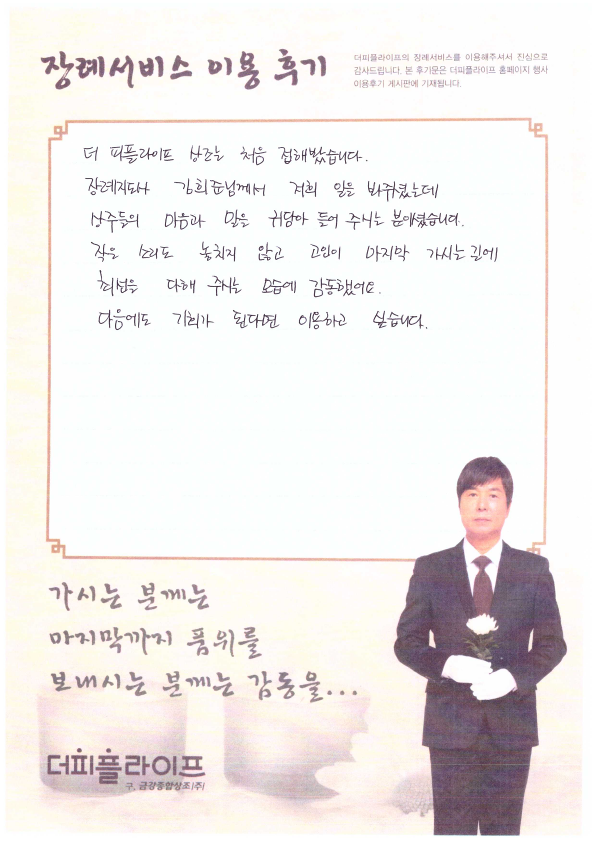 장례서비스 이용 후기
더피플라이프의 장례서비스를 이용해주셔서 진심으로
감사드립니다. 본 후기문은 더피플라이프 홈페이지 행사
이용후기 게시판에 기재됩니다.
더 피플라이프 상조는 처음 접해봤습니다.
장례지도사 김희준님께서 저희 일을 봐주셨는데
상주들의 마음과 말을 귀담아 들어 주시는 분이셨습니다.
작은 소리도 놓치지 않고 고인이 마지막 가시는 길에
최선을 다해 주시는 모습에 감동했어요.
다음에도 기회가 된다면 이용하고 싶습니다.
가시는 분께는
마지막까지 품위를
보내시는 분께는 감동을...
더피플라이프
구. 금강종합상조(주)